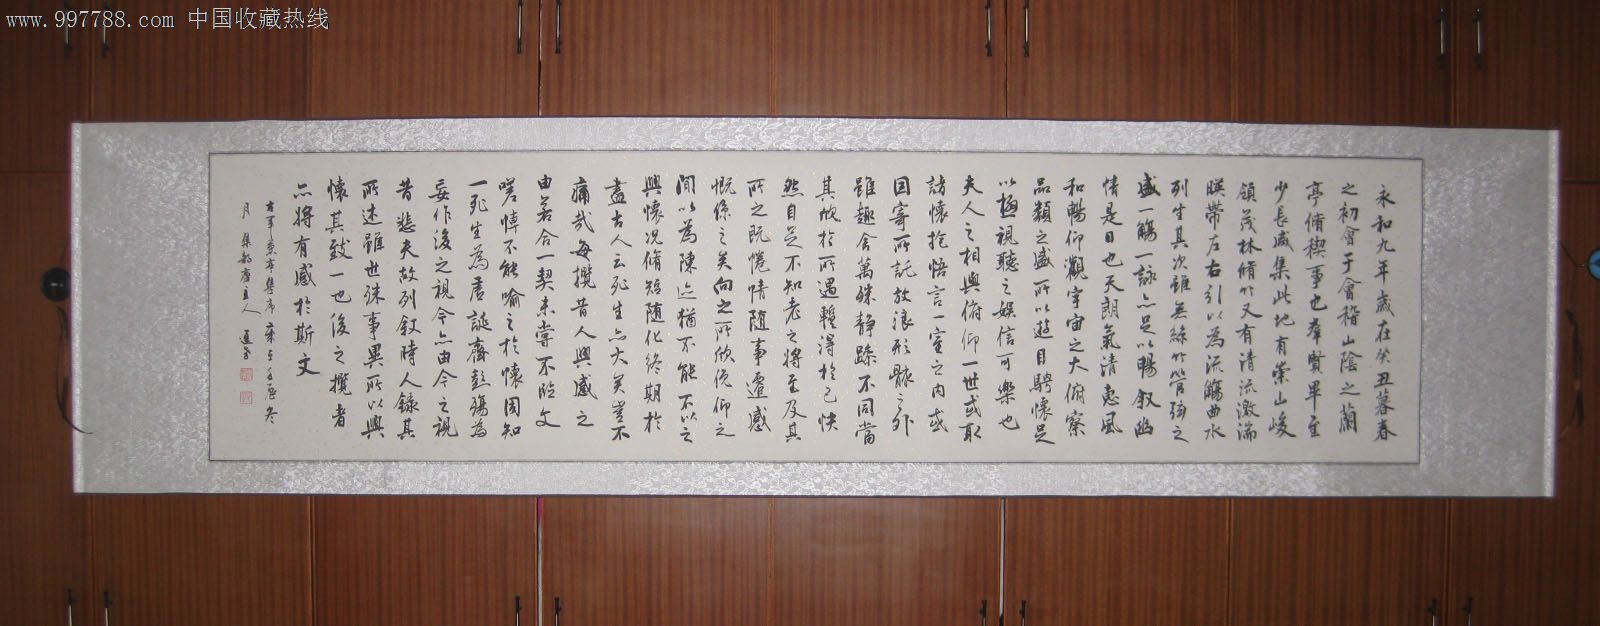 www.997788.com 中国收藏热线
永和九年歲在癸丑暮春
之初會于會稽山陰之蘭
亭脩稧事也羣賢畢至
少長咸集此地有崇山峻
領茂林脩竹又有清流激湍
暎帶左右引以為流觴曲水
列坐其次雖無絲竹管弦之
盛一觴一詠亦足以暢叙幽
情是日也天朗氣清惠風
和暢仰觀宇宙之大俯察
品類之盛所以遊目騁懷足
以極視聽之娛信可樂也
夫人之相與俯仰一世或取
諸懷抱悟言一室之內或
因寄所託放浪形骸之外
雖趣舍萬殊静躁不同當
其欣於所遇輙得於己快
然自足不知老之將至及其
所之既惓情随事遷感
慨係之矣向之所欣俛仰之
間以為陳迹猶不能不以之
興懷況脩短随化終期於
盡古人云死生亦大矣豈不
痛哉每攬昔人興感之
由若合一契未嘗不臨文
嗟悼不能喻之於懷固知
一死生為虛誕齊彭殤為
妄作後之視今亦由今之視
昔悲夫故列叙時人錄其
所述雖世殊事異所以興
懷其致一也後之攬者
亦將有感於斯文
右軍蘭亭集序 冬
月 主人